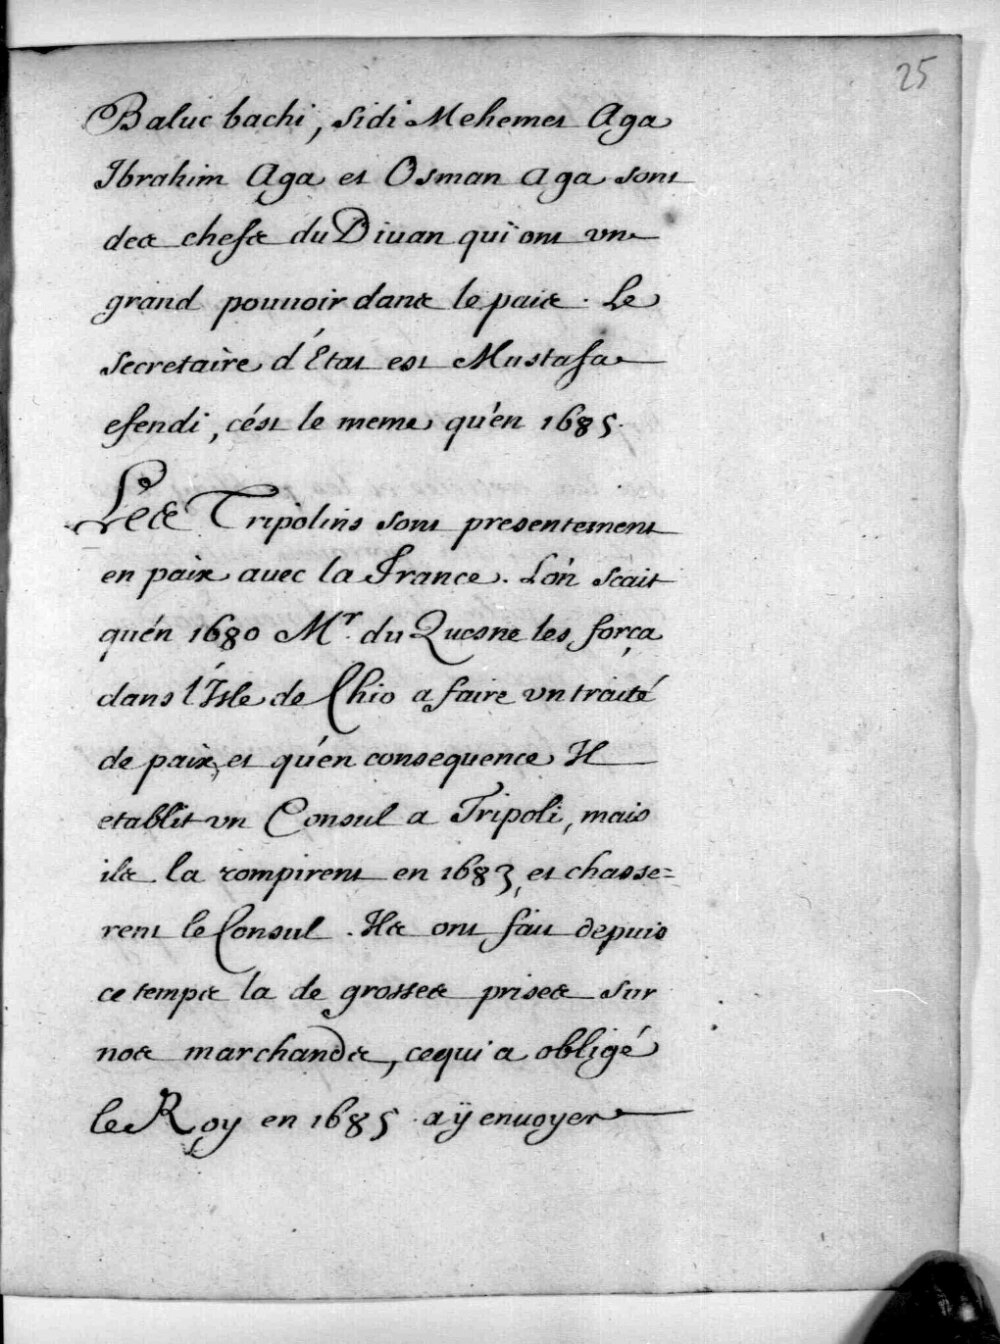 25
Baluc bachi, sidi Mehemet Aga
Ibrahim Aga et Osman aga sont
des chefs du Diuan qui ont vn
grand pouuoir dans le païs. Le
secretaire d'État est Mustafa
efendi, cést le meme qu'en 1685.
Les Tripolins sont presentement
en paix avec la France. L'on scait
qu'én 1680 Mr. du Quesne les força
dans l'Isle de Chio a faire vn traité
de paix, et qu'en consequence Il
etablit vn Consul a Tripoli, mais
ils la rompirent en 1683, et chasse=
rent le Consul. Ils ont fait depuis
ce temps la de grosses prises sur
nos marchands, ce qui a obligé
le Roy en 1685 a ÿ enuoyer